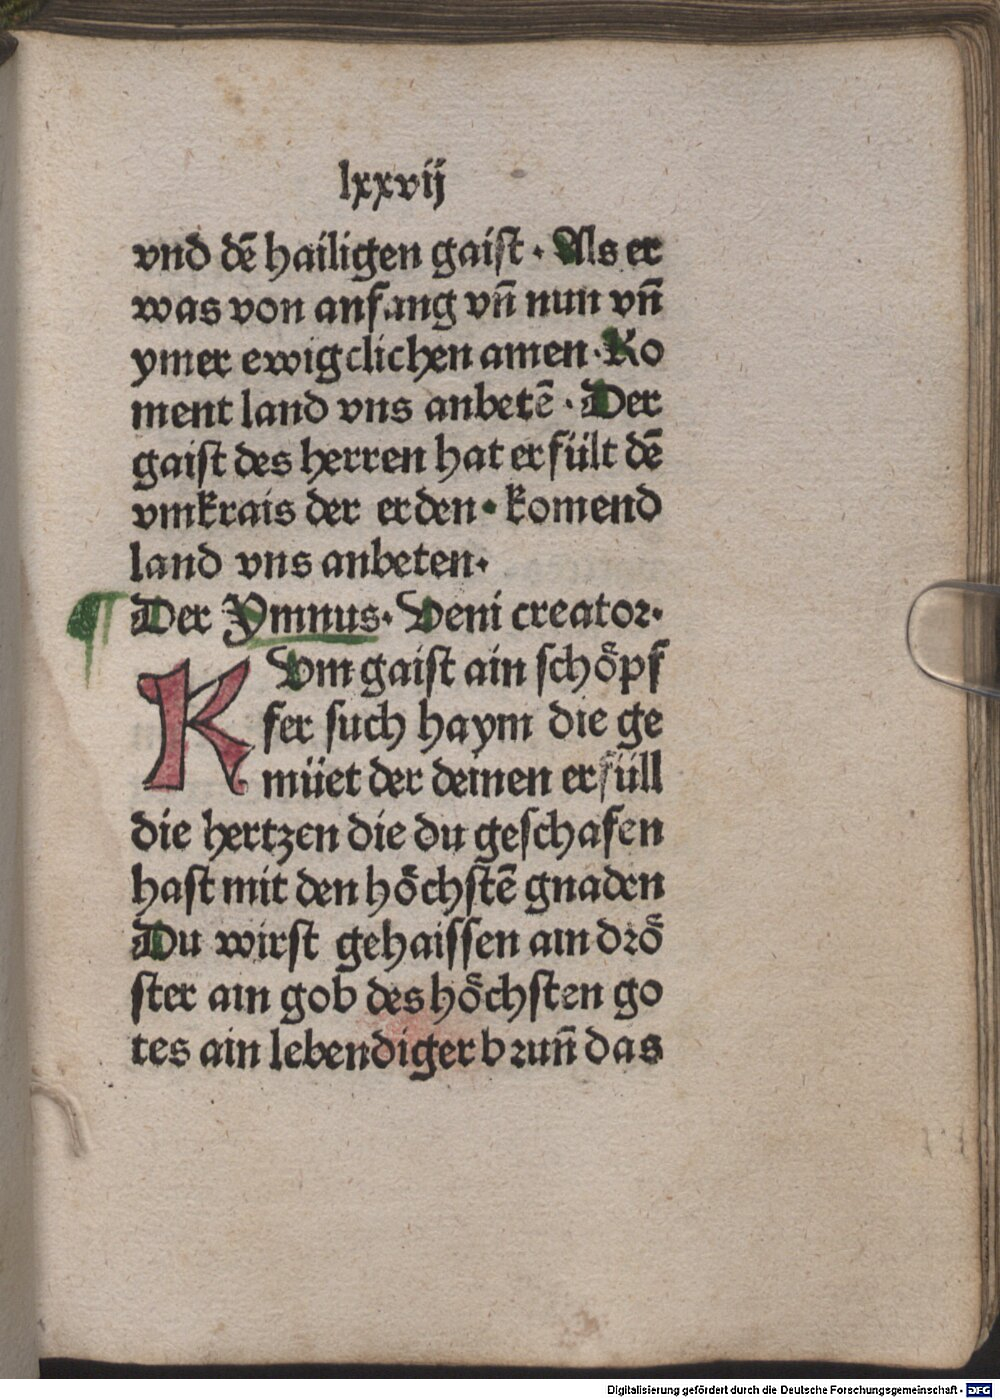 lxxvij
vnd dē hailigen gaiſt · Als er
was von anfang vn̄ nun vn̄
ymer ewigclichen amen · Ko
ment land vns anbetē · Der
gaiſt des herren hat erfült dē
vmkrais der erden · komend
land vns anbeten ·
¶ Der Ymnus · Veni creator ·
KVm gaiſt ain ſchoͤpf
fer ſuch haym die ge
müet der deinen erfüll
die hertzen die du geſchafen
haſt mit den hoͤchſtē gnaden
Du wirſt gehaiſſen ain droͤ
ſter ain gob des hoͤchſten go
tes ain lebendiger brun̄ das
Digitalisierung gefördert durch die Deutsche Forschungsgemeinschaft - DFG